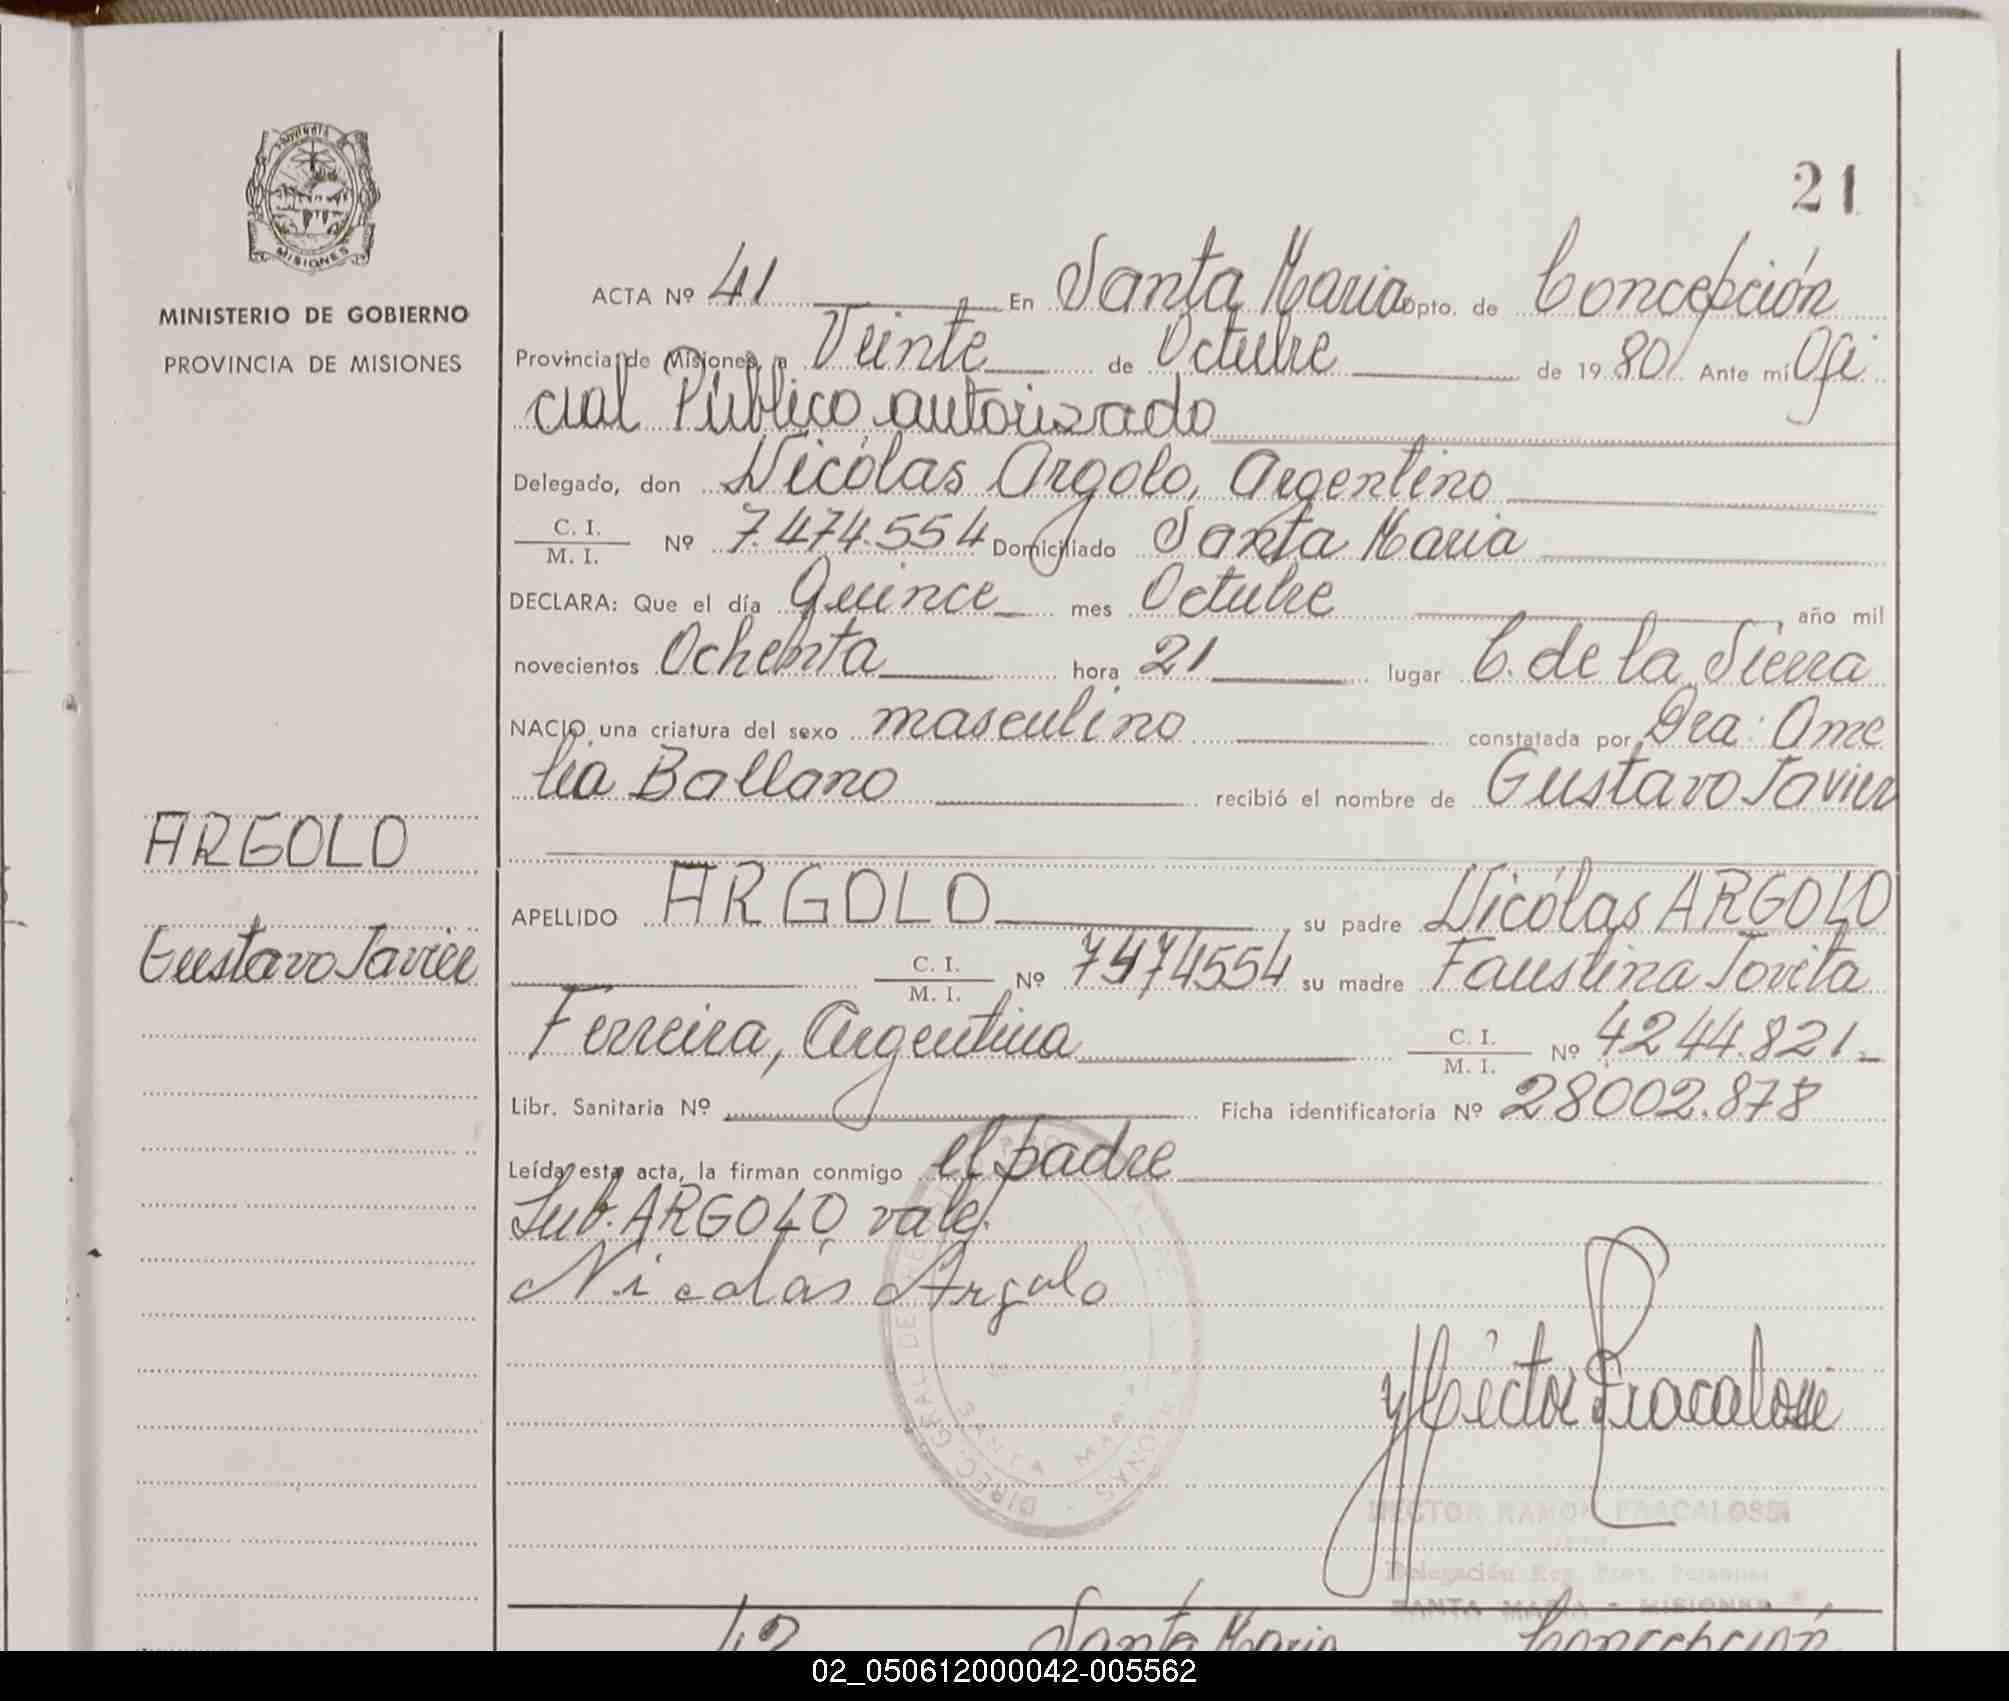 21
PROVINCIA
MISIONES
MINISTERIO DE GOBIERNO
PROVINCIA DE MISIONES
ARGOLO
Gustavo Javier
ACTA Nº 41 En Santa Maria Dpto. de Concepción
Provincia de Misiones, a Veinte de Octubre de 1980 Ante mí Ofi
cial Público autorizado
Delegado, don Nicólas Argolo, Argentino
C. I. / M. I. Nº 7.474.554 Domiciliado Santa Maria
DECLARA: Que el día Quince mes Octubre, año mil
novecientos Ochenta hora 21 lugar C. de la Sierra
NACIO una criatura del sexo masculino constatada por Dra: Ame
lia Ballano recibió el nombre de Gustavo Javier
APELLIDO ARGOLO, su padre Nicólas ARGOLO
C. I. / M. I. Nº 7474554 su madre Faustina Jovita
Ferreira, Argentina C. I. / M. I. Nº 4244.821.-
Libr. Sanitaria Nº Ficha identificatoria Nº 28002.878
Leída esta acta, la firman conmigo el padre
Sub. ARGOLO vale.
Nicolás Argolo
Héctor Fracalossi
HECTOR RAMON FRACALOSSI
Delegación Reg. Prov. Personas
SANTA MARIA - MISIONES
42 Santa Maria Concepción
02_050612000042-005562